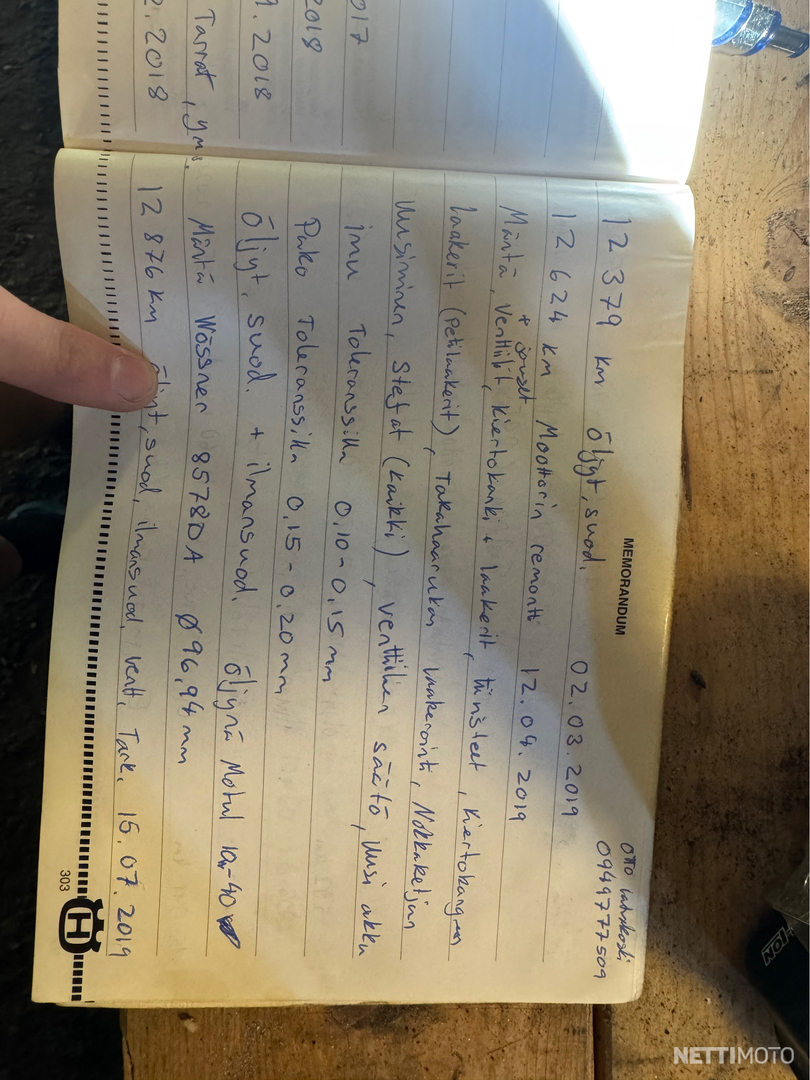 017
2018
9.2018
Tarrat, yms.
2.2018
MEMORANDUM
Otto
0949777509
12 379 km öljyt, suod. 02.03.2019
12 624 km Moottorin remontti 12.04.2019
+ jouset
Mäntä, Venttiilit, Kiertokanki + laakerit, tiivisteet, Kiertokangen
Laakerit (Petilaakerit), Takahaarukan laakerointi, Nokkaketjun
Uusiminen, Stefat (Kaikki), Venttiilien säätö, Uusi akku
imu Toleranssilla 0,10-0,15 mm
Pako Toleranssilla 0,15-0,20 mm
Öljyt, suod. + ilmansuod. öljynä Motul 10w-40
Mäntä Wössner 8578DA Ø96,94 mm
12 876 km öljyt, suod, ilmansuod, vent. Tark. 15.07.2019
303
H
NETTIMOTO